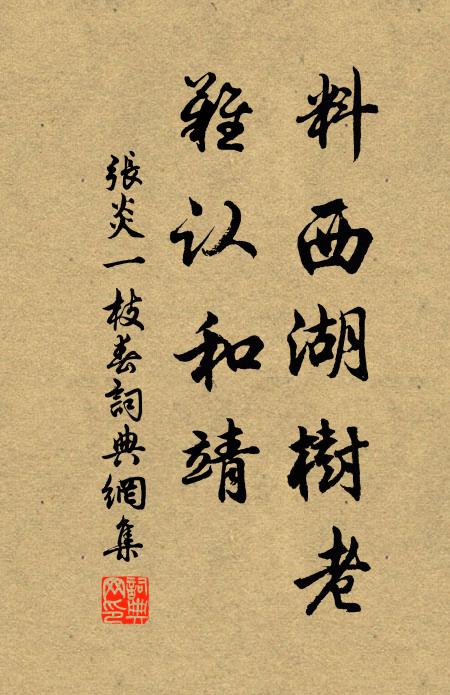 料西湖樹老
難认和靖
張炎一枝春詞典網集
詞典网印